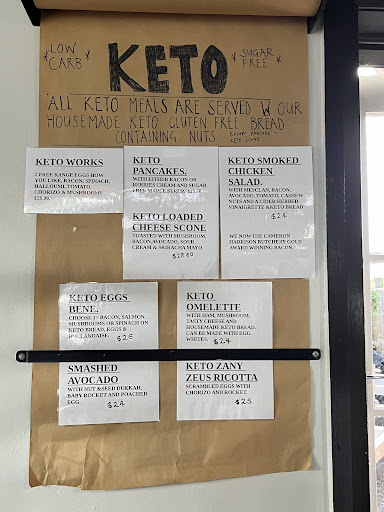 *LOW CARB*
KETO
*SUGAR FREE*
ALL KETO MEALS ARE SERVED W OUR
HOUSEMADE KETO GLUTEN FREE BREAD
CONTAINING NUTS EXCEPT PANCAKE +
KETO SCONE
KETO WORKS
2 FREE RANGE EGGS HOW
YOU LIKE, BACON, SPINACH,
HALLOUMI, TOMATO,
CHORIZO & MUSHROOMS
KETO
PANCAKES.
WITH EITHER BACON OR
BERRIES CREAM AND SUGAR
FREE MAPLE SYRUP
KETO LOADED
CHEESE SCONE
TOASTED WITH MUSHROOM,
BACON, AVOCADO, SOUR
CREAM & SRIRACHA MAYO
KETO SMOKED
CHICKEN
SALAD.
WITH MESCLAN, BACON,
AVOCADO, TOMATO, CASHEW
NUTS AND A CIDER/HERBED
VINAIGRETTE & KETO BREAD
$24
WE NOW USE CAMERON
HARRISON BUTCHERY GOLD
AWARD WINNING BACON.
KETO EGGS
BENE.
CHOOSE 1= BACON, SALMON,
MUSHROOMS OR SPINACH ON
KETO BREAD, EGGS &
HOLLANDAISE. $25
KETO
OMELETTE
WITH HAM, MUSHROOM,
TASTY CHEESE AND
HOUSEMADE KETO BREAD.
CAN BE MADE WITH EGG
WHITES. $24
SMASHED
AVOCADO
WITH NUT &SEED DUKKAH,
BABY ROCKET AND POACHED
EGG. $24
KETO ZANY
ZEUS RICOTTA
SCRAMBLED EGGS WITH
CHORIZO AND ROCKET.
$25